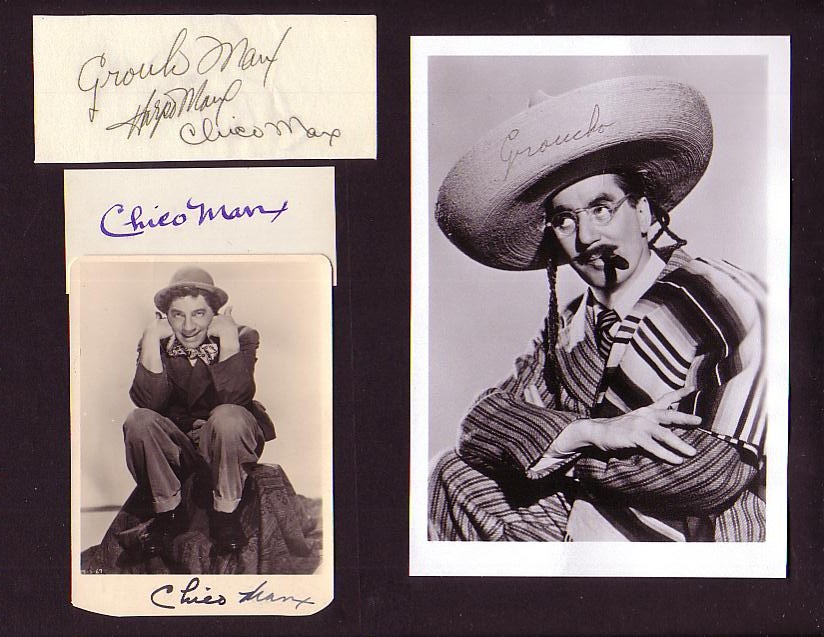 Groucho Marx
Harpo Marx
Chico Marx
Chico Marx
Groucho
Chico Marx